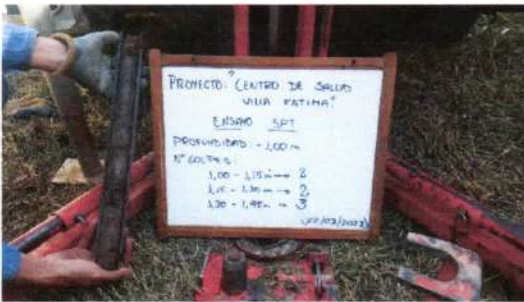 PROYECTO: "CENTRO DE SALUD
VILLA FATIMA"
ENSAYO SPT
PROFUNDIDAD: -1,00 m
N° GOLPES:
1,00 - 1,15 m → 2
1,15 - 1,30 m → 2
1,30 - 1,45 m → 3